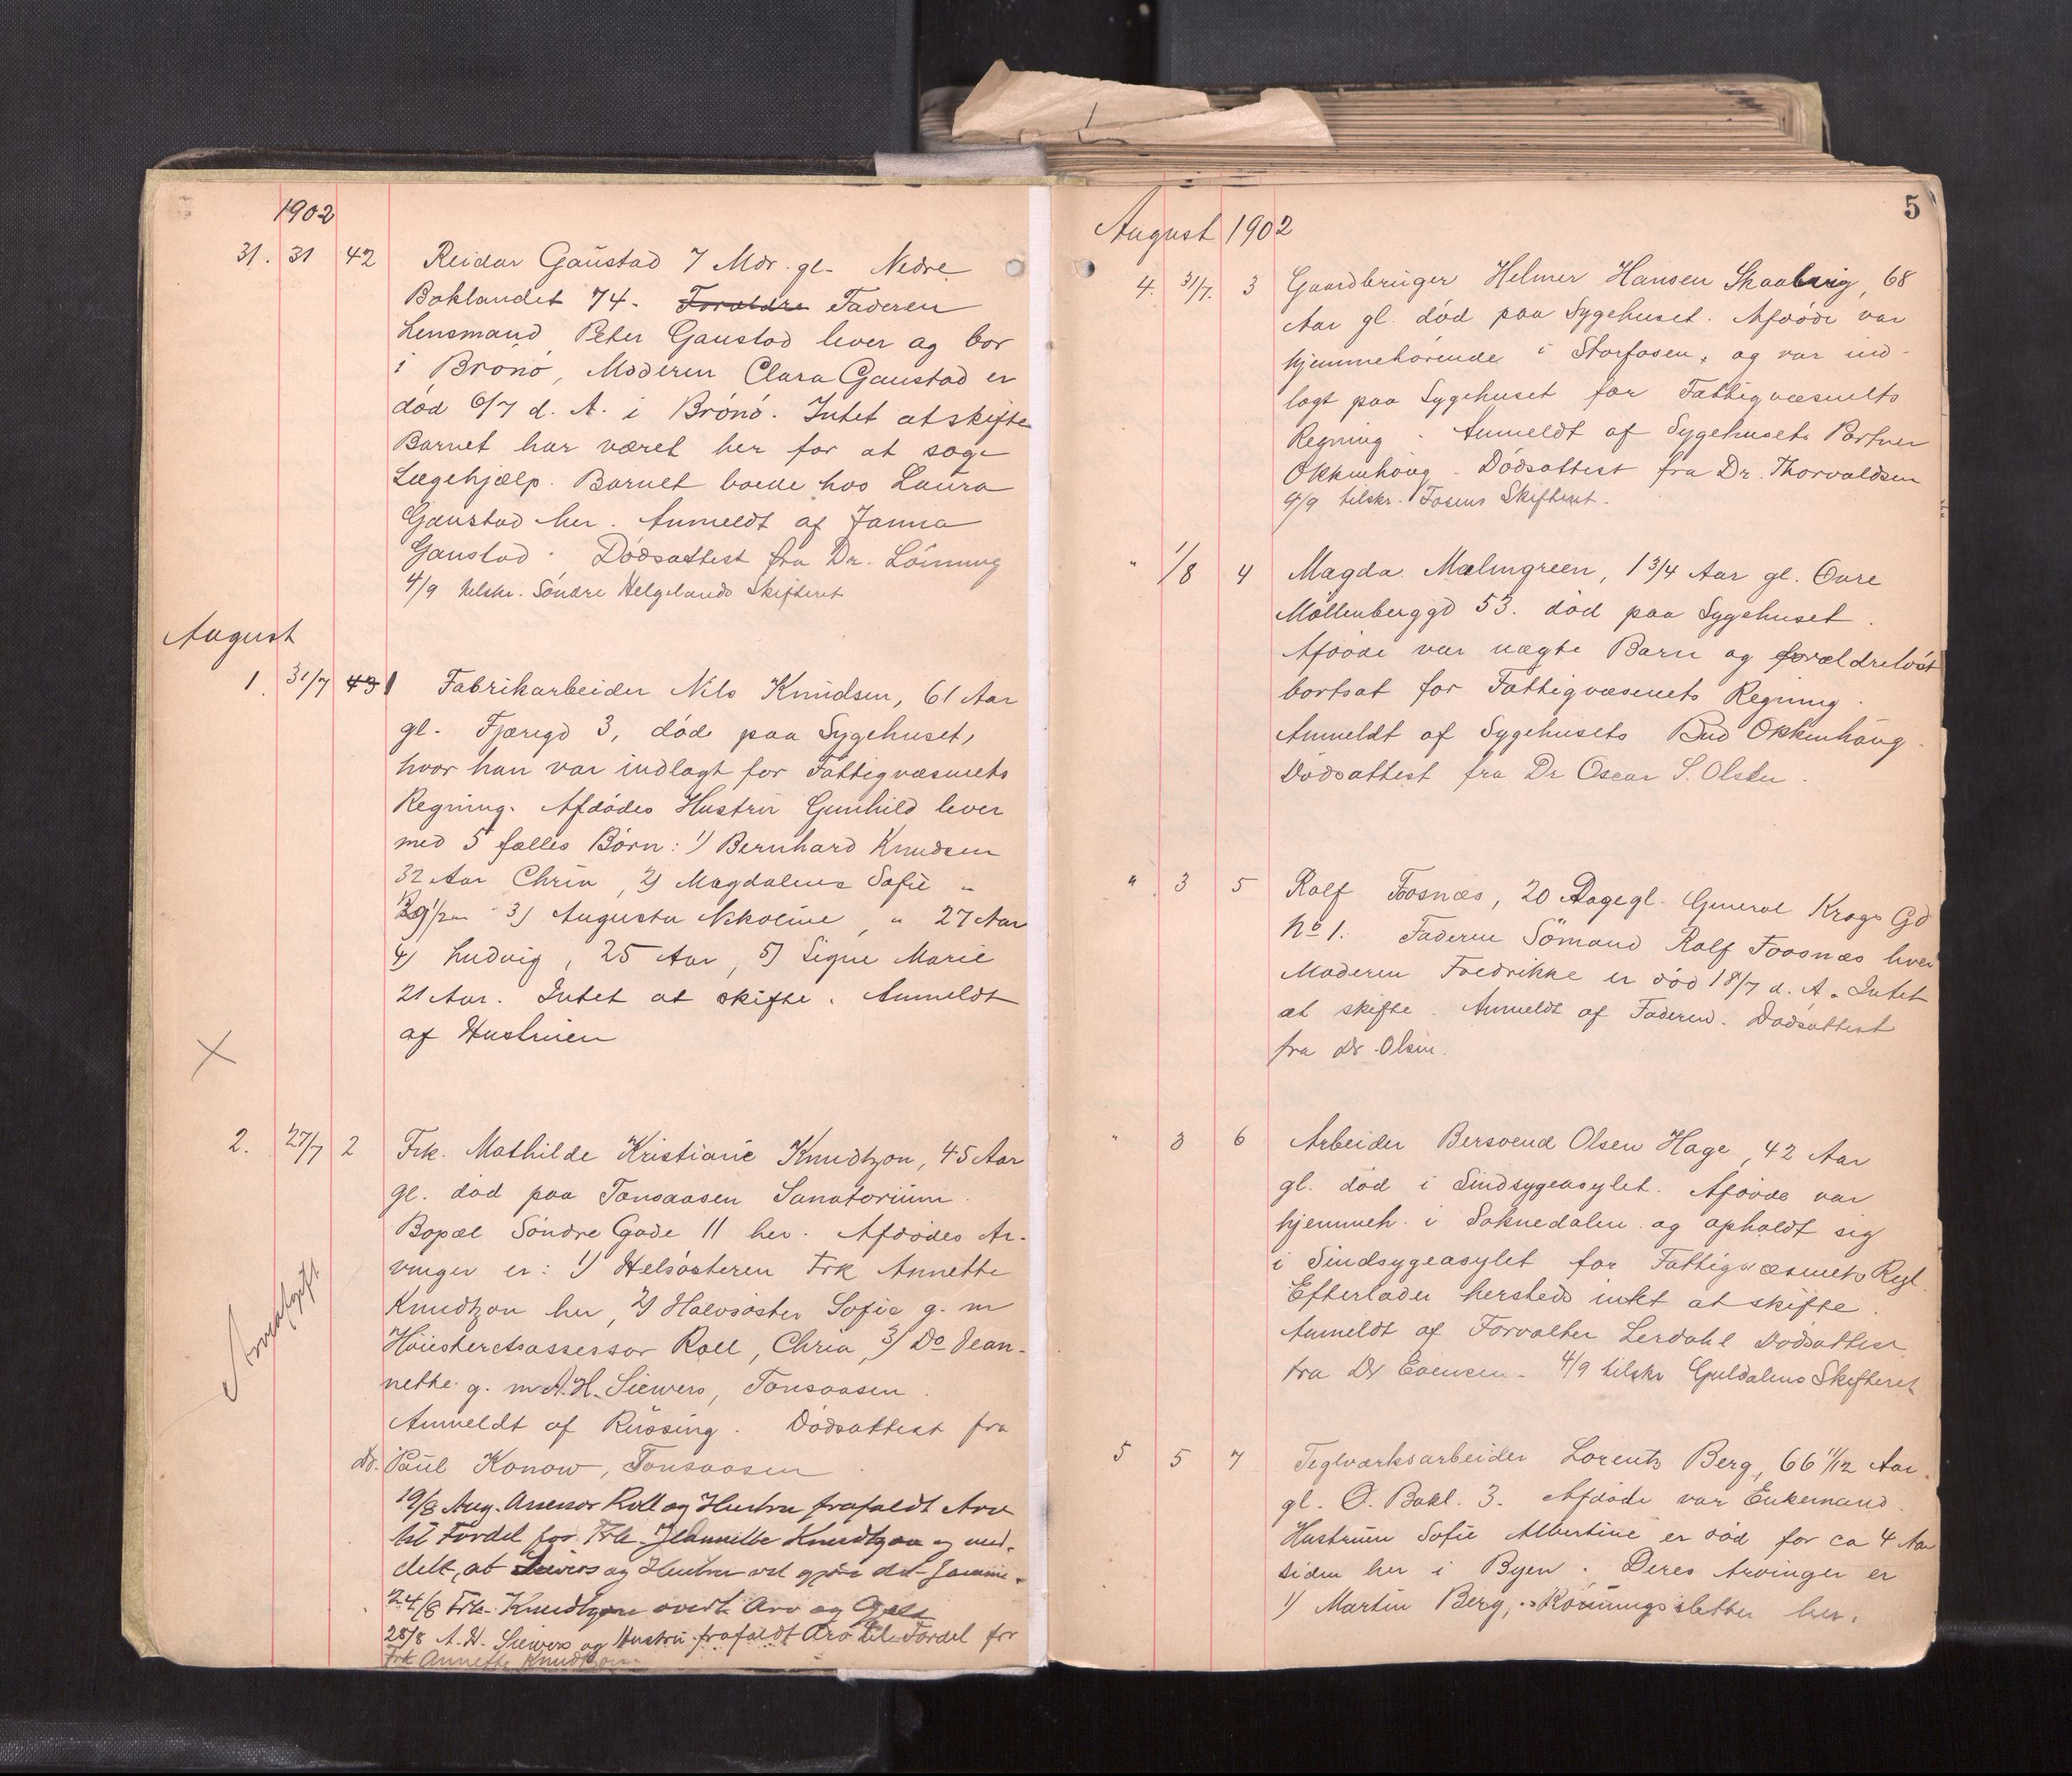 1902
31. 31 42 Reidar Gaustad 7 Mdr. gl. Nedre
Baklandet 74. Forældre Faderen
Lensmand Peter Gaustad lever og bor
i Brönö, Moderen Clara Gaustad er
död 6/7 d. A. i Brönö. Intet at skifte
Barnet har været her for at søge
Lægehjælp. Barnet boede hos Laura
Gaustad her. Anmeldt af Janna
Gaustad. Dödsattest fra Dr. Lönning
4/9 tilskr. Söndre Helgelands Skifteret
August
1. 31/7 43 1 Fabrikarbeider Nils Knudsen, 61 Aar
gl. Fjæregd 3, döde paa Sygehuset,
hvor han var indlagt for Fattigvæsenets
Regning. Afdödes Hustru Gunhild lever
med 5 fælles Börn: 1) Bernhard Knudsen
32 Aar Chria, 2) Magdalene Sofie "
3) Augusta Nikoline, " 27 Aar
4) Ludvig, 25 Aar, 5) Signe Marie
21 Aar. Intet at skifte. Anmeldt
af Hustruen
2. 27/7 2 Frk. Mathilde Kristiane Knudtzon, 45 Aar
gl. död paa Tonsaasen Sanatorium.
Bopæl Söndre Gade 11 her. Afdödes Ar-
vinger er: 1) Helsösteren Frk Annette
Knudtzon her, 2) Halvsöster Sofie g. m
Höiesteretsassessor Roll, Chria, 3) Do Jean-
nethe g. m A. H. Siewers, Tonsaasen.
Arveafgift
Anmeldt af Rüssing. Dödsattest fra
Dr. Paul Konow, Tonsaasen.
19/8 Aug. Assessor Roll og Hustru frafaldt Arv
til Fordel for Frk. Jeannette Knudtzon og med-
delt, at Siewers og Hustru vil gjöre det samme.
24/8 Frk. Knudtzon overt. Arv og Gjeld
28/8 A. H. Siewers og Hustru frafaldt Arv til Fordel for
Frk Annette Knudtzon
5
August 1902
4. 31/7. 3 Gaardbruger Helmer Hansen 68
Aar gl. död paa Sygehuset. Afdöde var
hjemmehörende i Storfosen, og var ind-
lagt paa Sygehuset for Fattigvæsenets
Regning. Anmeldt af Sygehusets Portner
Okkenhaug. Dödsattest fra Dr. Thorvaldsen
4/9 tilskr. Fosens Skifteret.
" 1/8 4 Magda Malmgreen, 1 3/4 Aar gl. Övre
Möllenberggd 53. död paa Sygehuset.
Afdöde var uægte Barn og forældrelöst
bortsat for Fattigvæsenets Regning.
Anmeldt af Sygehusets Bud Okkenhaug.
Dödsattest fra Dr Oscar S. Olsen.
" 3 5 Rolf Foosnæs, 20 Dage gl. General Krags Gd
No 1. Faderen Sömand Rolf Foosnæs lever
Moderen Fredrikke er död 18/7 d. A. Intet
at skifte. Anmeldt af Faderen. Dödsattest
fra Dr. Olsen.
" 3 6 Arbeider Bersvend Olsen Hage, 42 Aar
gl. död i Sindsygeasylet. Afdöde var
hjemmeh. i Soknedalen og opholdt sig
i Sindsygeasylet for Fattigvæsenets Regl.
Efterlader hersteds intet at skifte.
Anmeldt af Forvalter Lerdahl Dödsattest
fra Dr Evensen. 4/9 tilskr Guldalens Skifteret
5 5 7 Teglværksarbeider Lorents Berg, 66 11/12 Aar
gl. Ö. Bakl. 3. Afdöde var Enkemand.
Hustruen Sofie Albertine er död for ca 4 Aar
siden her i Byen. Deres Arvinger er
1) Martin Berg, Rönningsletten her.